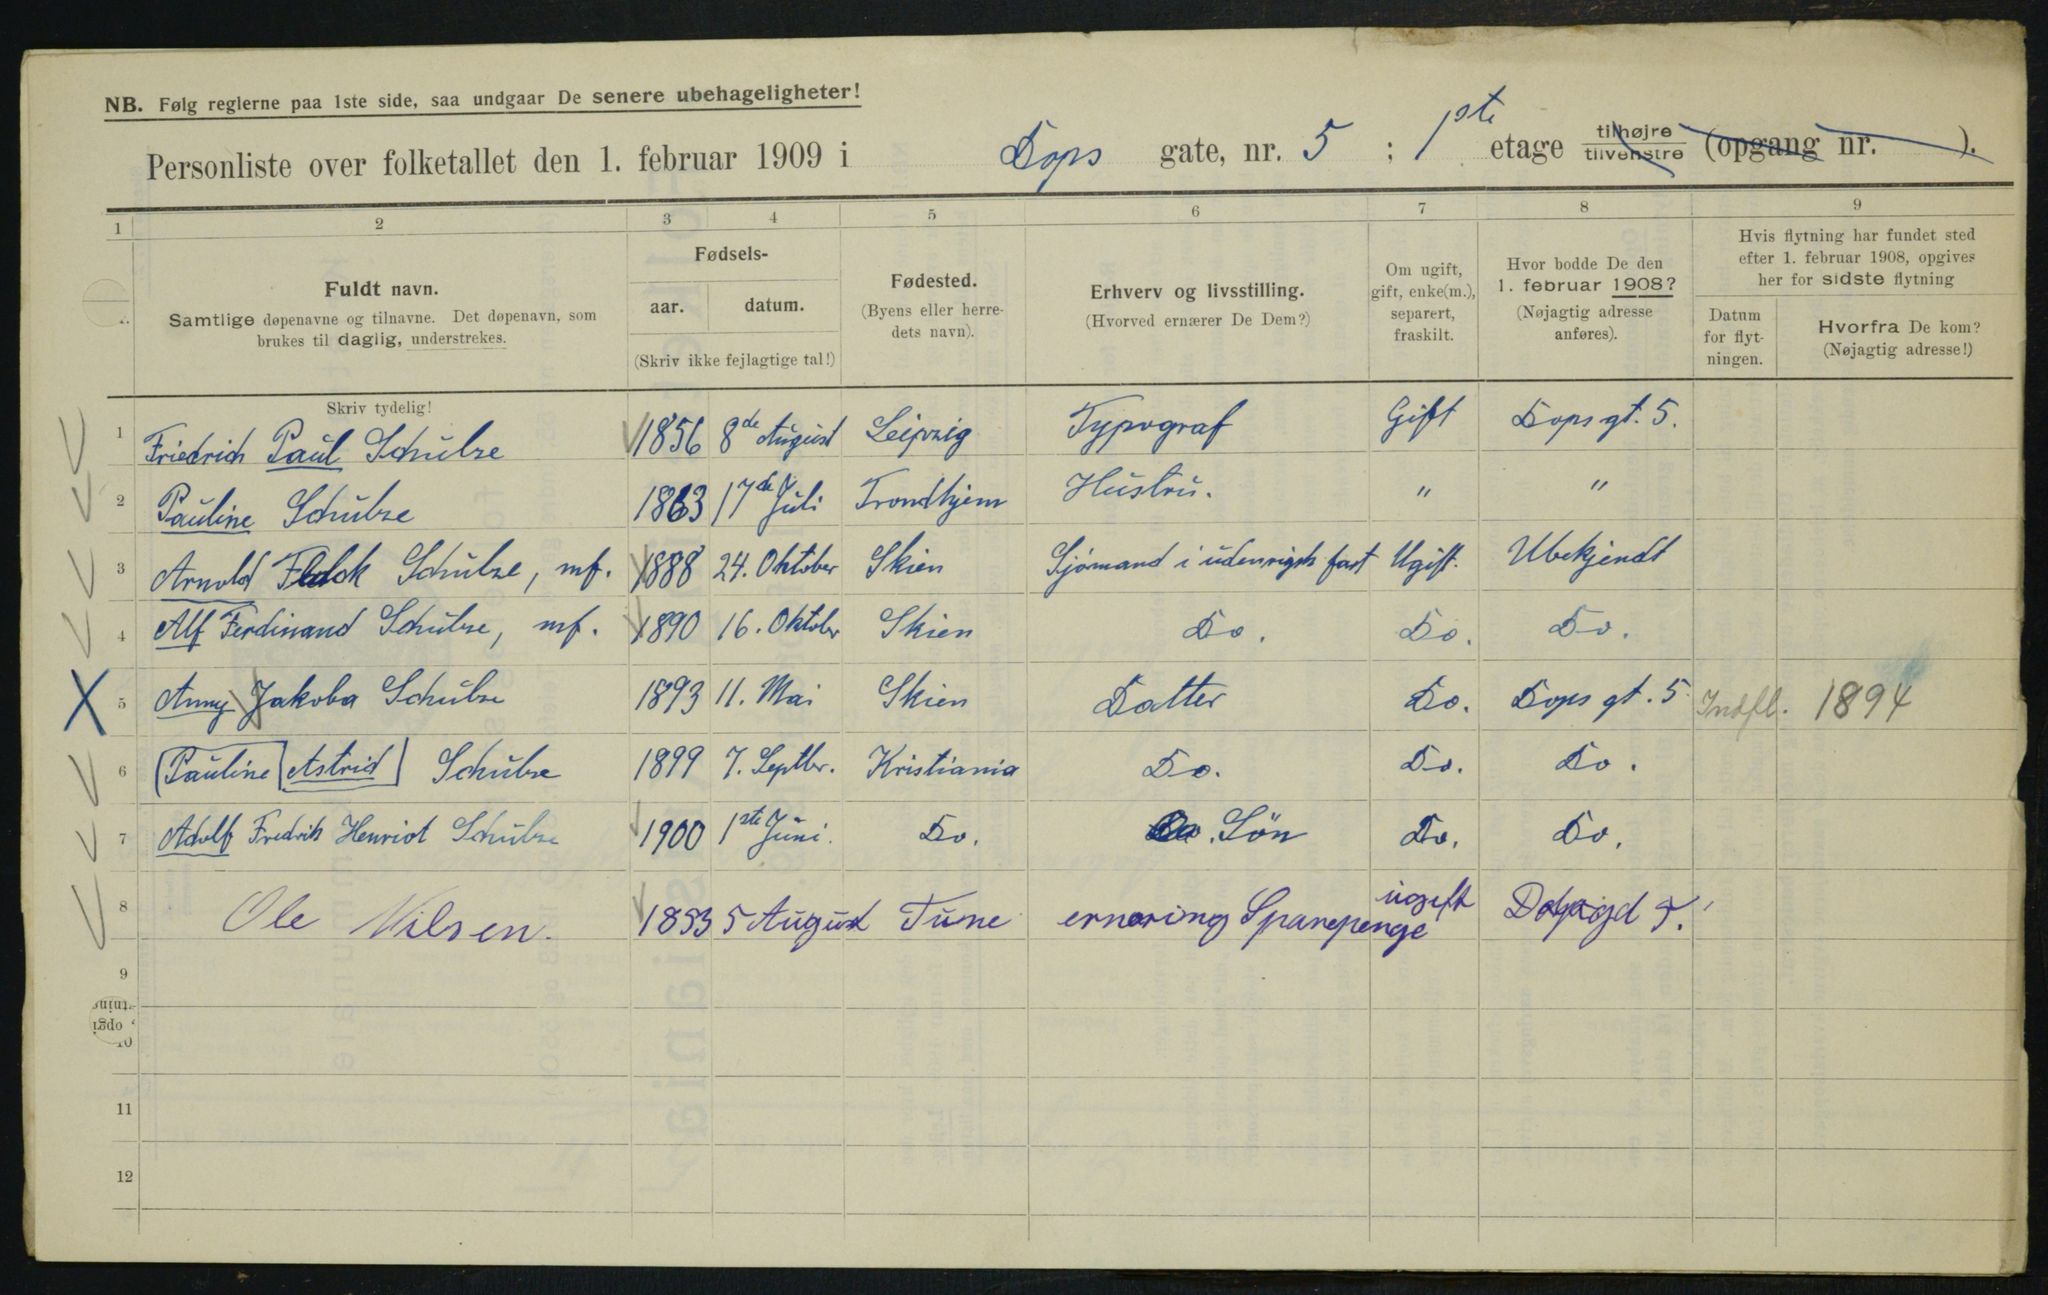 NB. Følg reglerne paa 1ste side, saa undgaar De senere ubehageligheter!
Personliste over folketallet den 1. februar 1909 i Dops gate, nr. 5 ; 1ste etage tilhøjre tilvenstre (opgang nr. ).
1 2 3 4 5 6 7 8 9
Fuldt navn.
Samtlige døpenavne og tilnavne. Det døpenavn, som
brukes til daglig, understrekes.
Skriv tydelig!
Fødsels-
aar. datum.
(Skriv ikke fejlagtige tal!)
Fødested.
(Byens eller herre-
dets navn).
Erhverv og livsstilling.
(Hvorved ernærer De Dem?)
Om ugift,
gift, enke(m.),
separert,
fraskilt.
Hvor bodde De den
1. februar 1908?
(Nøjagtig adresse
anføres).
Hvis flytning har fundet sted
efter 1. februar 1908, opgives
her for sidste flytning
Datum
for flyt-
ningen.
Hvorfra De kom?
(Nøjagtig adresse!)
1 Friedrich Paul Schulze 1856 8de August Leipzig Typograf Gift Dops gt. 5.
2 Pauline Schulze 1863 17de Juli Trondhjem Hustru. " "
3 Arnold Schulze, mf. 1888 24. Oktober Skien Sjømand i udenrigsk fart Ugift. Ubekjendt
4 Alf Ferdinand Schulze, mf. 1890 16. Oktober Skien Do. Do. Do.
5 Anny Jakoba Schulze 1893 11. Mai Skien Datter Do. Dops gt. 5 Indfl. 1894
6 (Pauline) Astrid Schulze 1899 7. Septbr. Kristiania Do. Do. Do.
7 Adolf Fredrik Henriot Schulze 1900 1ste Juni. Do. Søn Do. Do.
8 Ole Nilsen. 1853 5 August Tune ernæring Sparepenge ugift
9
10
11
12